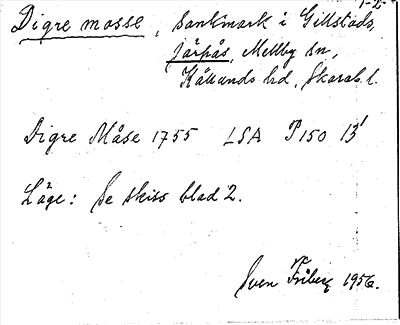 1-2
Digre mosse, Sankmark i Gillstads,
Järpås, Mellby sn,
Kållands hd, Skarab. l.
Digre Måse 1755 LSA P150 13¹
Läge: Se skiss blad 2.
Sven Friberg 1956.